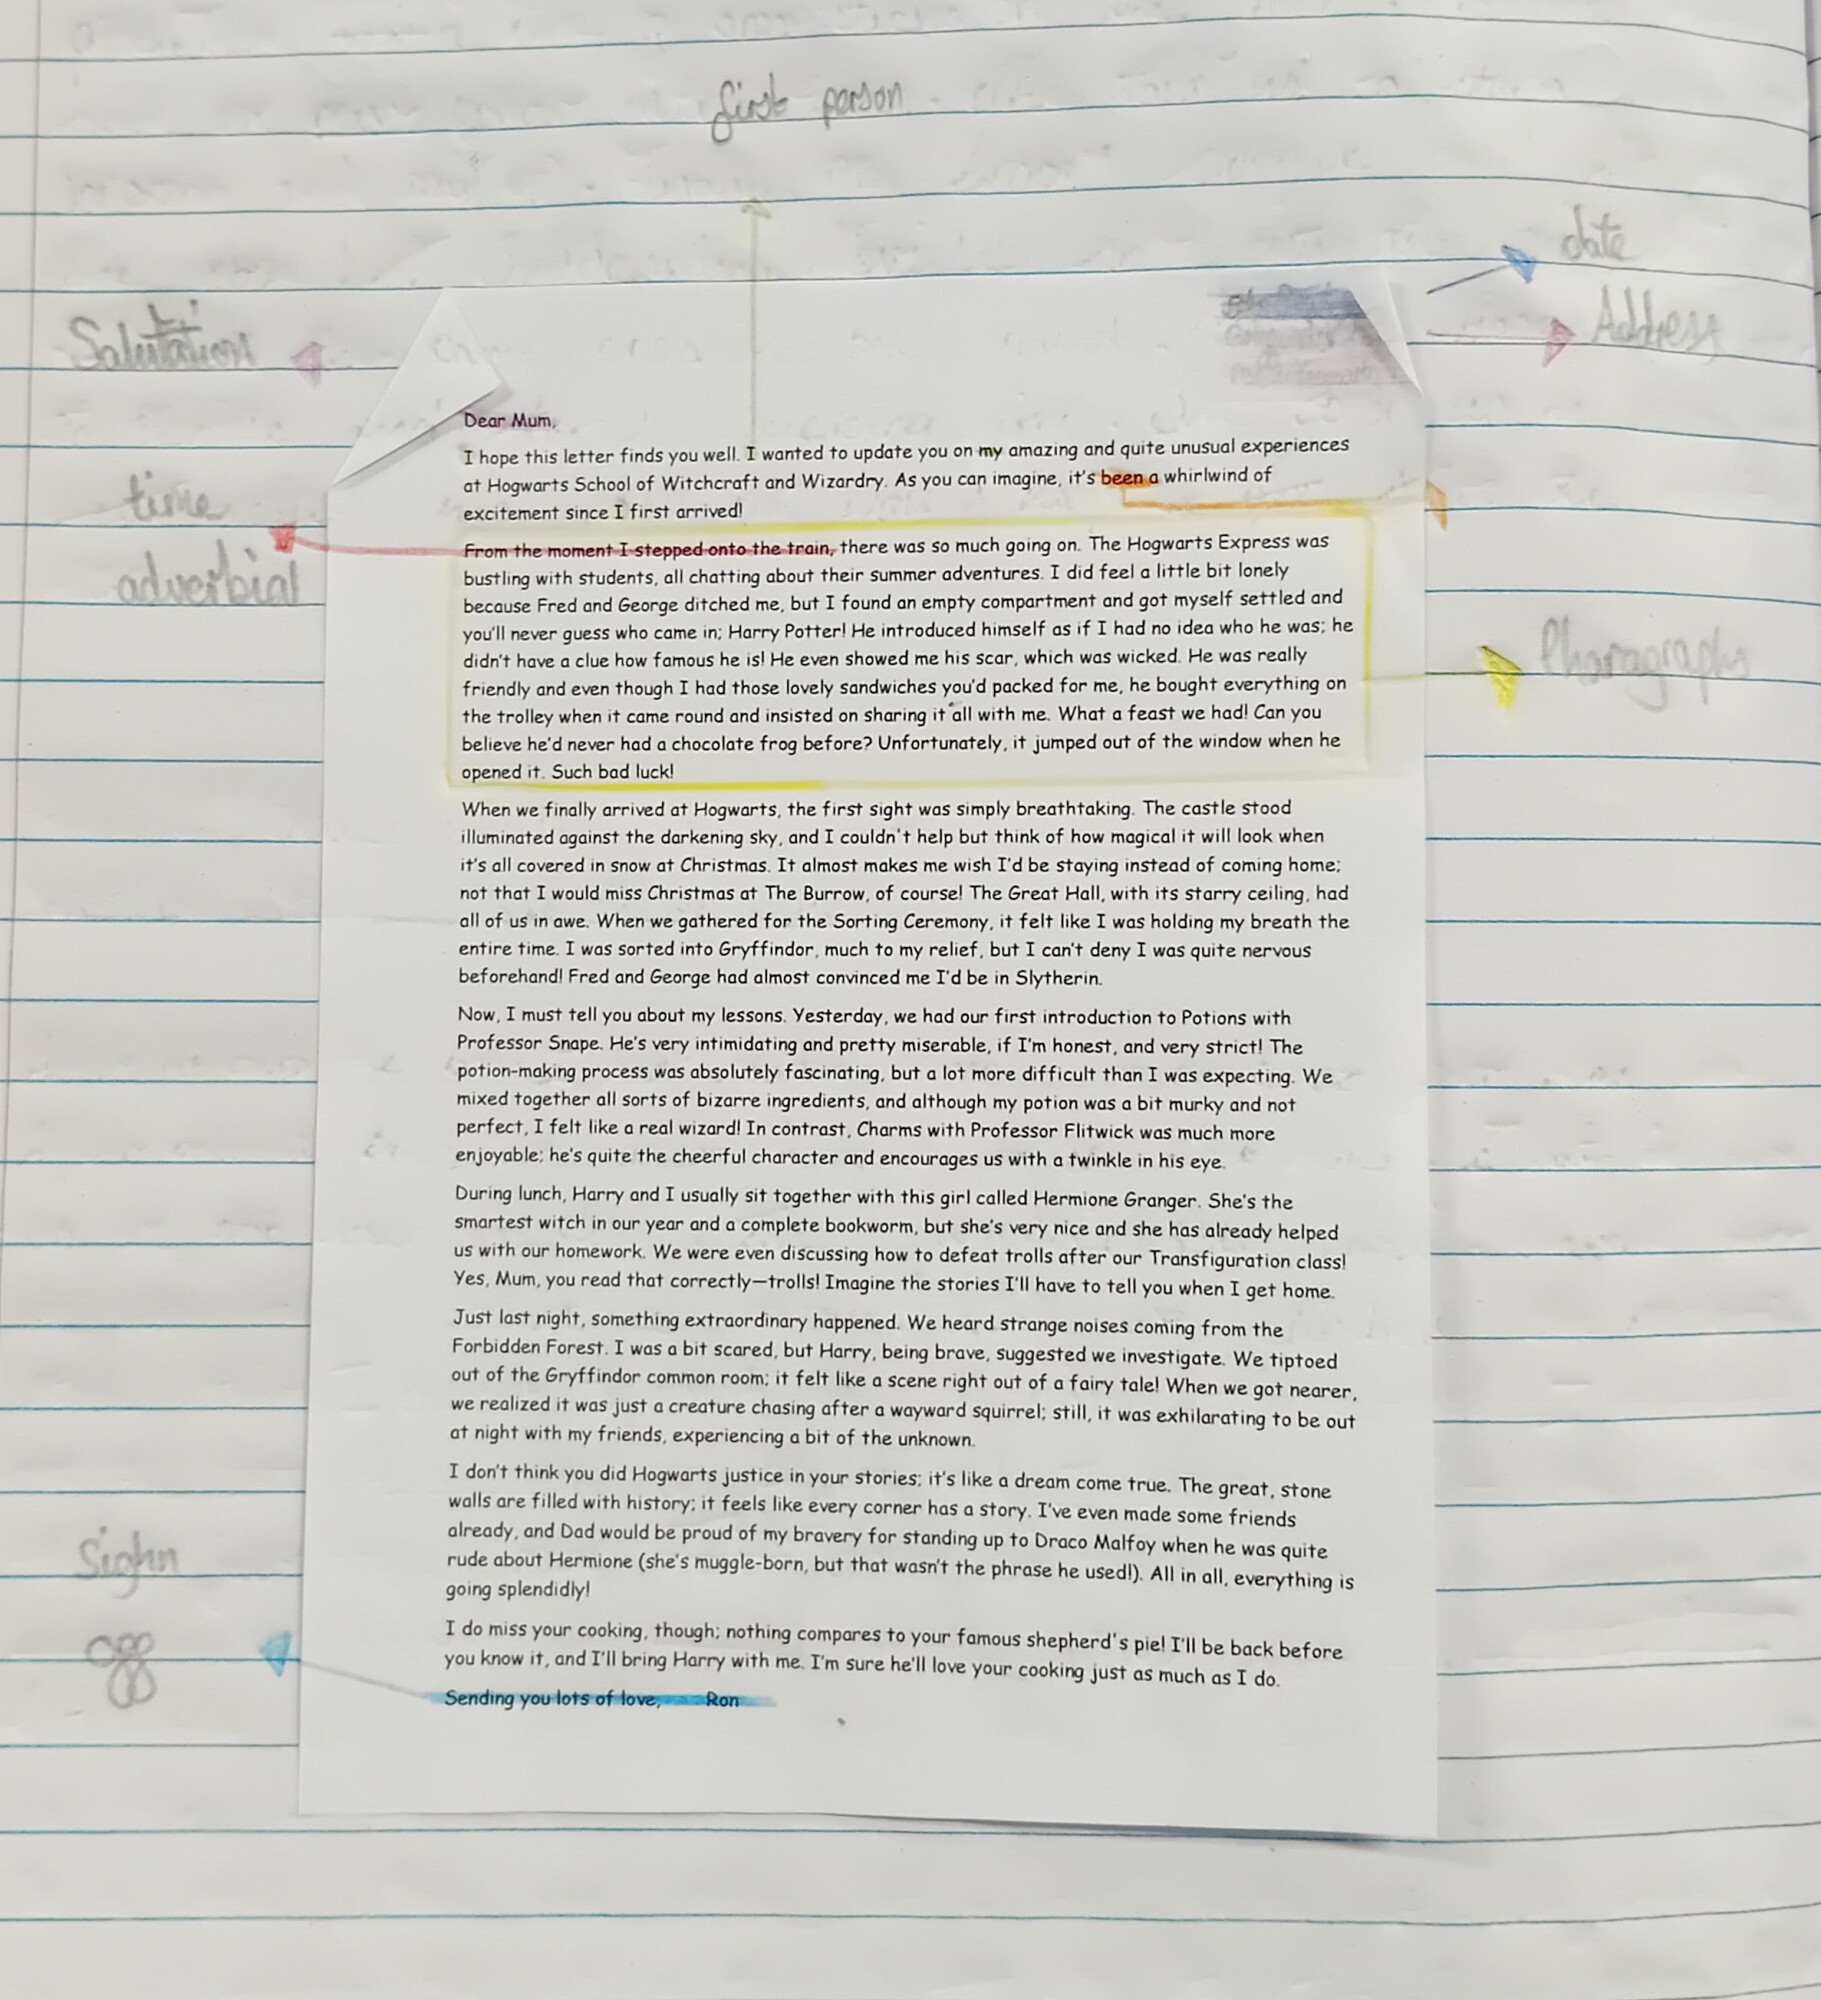 first person
date
Address
Salutation
Dear Mum,
I hope this letter finds you well. I wanted to update you on my amazing and quite unusual experiences
at Hogwarts School of Witchcraft and Wizardry. As you can imagine, it's been a whirlwind of
excitement since I first arrived!
time
adverbial
From the moment I stepped onto the train, there was so much going on. The Hogwarts Express was
bustling with students, all chatting about their summer adventures. I did feel a little bit lonely
because Fred and George ditched me, but I found an empty compartment and got myself settled and
you'll never guess who came in; Harry Potter! He introduced himself as if I had no idea who he was; he
didn't have a clue how famous he is! He even showed me his scar, which was wicked. He was really
friendly and even though I had those lovely sandwiches you'd packed for me, he bought everything on
the trolley when it came round and insisted on sharing it all with me. What a feast we had! Can you
believe he'd never had a chocolate frog before? Unfortunately, it jumped out of the window when he
opened it. Such bad luck!
Pharagraphs
When we finally arrived at Hogwarts, the first sight was simply breathtaking. The castle stood
illuminated against the darkening sky, and I couldn't help but think of how magical it will look when
it's all covered in snow at Christmas. It almost makes me wish I'd be staying instead of coming home;
not that I would miss Christmas at The Burrow, of course! The Great Hall, with its starry ceiling, had
all of us in awe. When we gathered for the Sorting Ceremony, it felt like I was holding my breath the
entire time. I was sorted into Gryffindor, much to my relief, but I can't deny I was quite nervous
beforehand! Fred and George had almost convinced me I'd be in Slytherin.
Now, I must tell you about my lessons. Yesterday, we had our first introduction to Potions with
Professor Snape. He's very intimidating and pretty miserable, if I'm honest, and very strict! The
potion-making process was absolutely fascinating, but a lot more difficult than I was expecting. We
mixed together all sorts of bizarre ingredients, and although my potion was a bit murky and not
perfect, I felt like a real wizard! In contrast, Charms with Professor Flitwick was much more
enjoyable; he's quite the cheerful character and encourages us with a twinkle in his eye.
During lunch, Harry and I usually sit together with this girl called Hermione Granger. She's the
smartest witch in our year and a complete bookworm, but she's very nice and she has already helped
us with our homework. We were even discussing how to defeat trolls after our Transfiguration class!
Yes, Mum, you read that correctly—trolls! Imagine the stories I'll have to tell you when I get home.
Just last night, something extraordinary happened. We heard strange noises coming from the
Forbidden Forest. I was a bit scared, but Harry, being brave, suggested we investigate. We tiptoed
out of the Gryffindor common room; it felt like a scene right out of a fairy tale! When we got nearer,
we realized it was just a creature chasing after a wayward squirrel; still, it was exhilarating to be out
at night with my friends, experiencing a bit of the unknown.
I don't think you did Hogwarts justice in your stories; it's like a dream come true. The great, stone
walls are filled with history; it feels like every corner has a story. I've even made some friends
already, and Dad would be proud of my bravery for standing up to Draco Malfoy when he was quite
rude about Hermione (she's muggle-born, but that wasn't the phrase he used!). All in all, everything is
going splendidly!
I do miss your cooking, though; nothing compares to your famous shepherd's pie! I'll be back before
you know it, and I'll bring Harry with me. I'm sure he'll love your cooking just as much as I do.
Sighn
off
Sending you lots of love, Ron